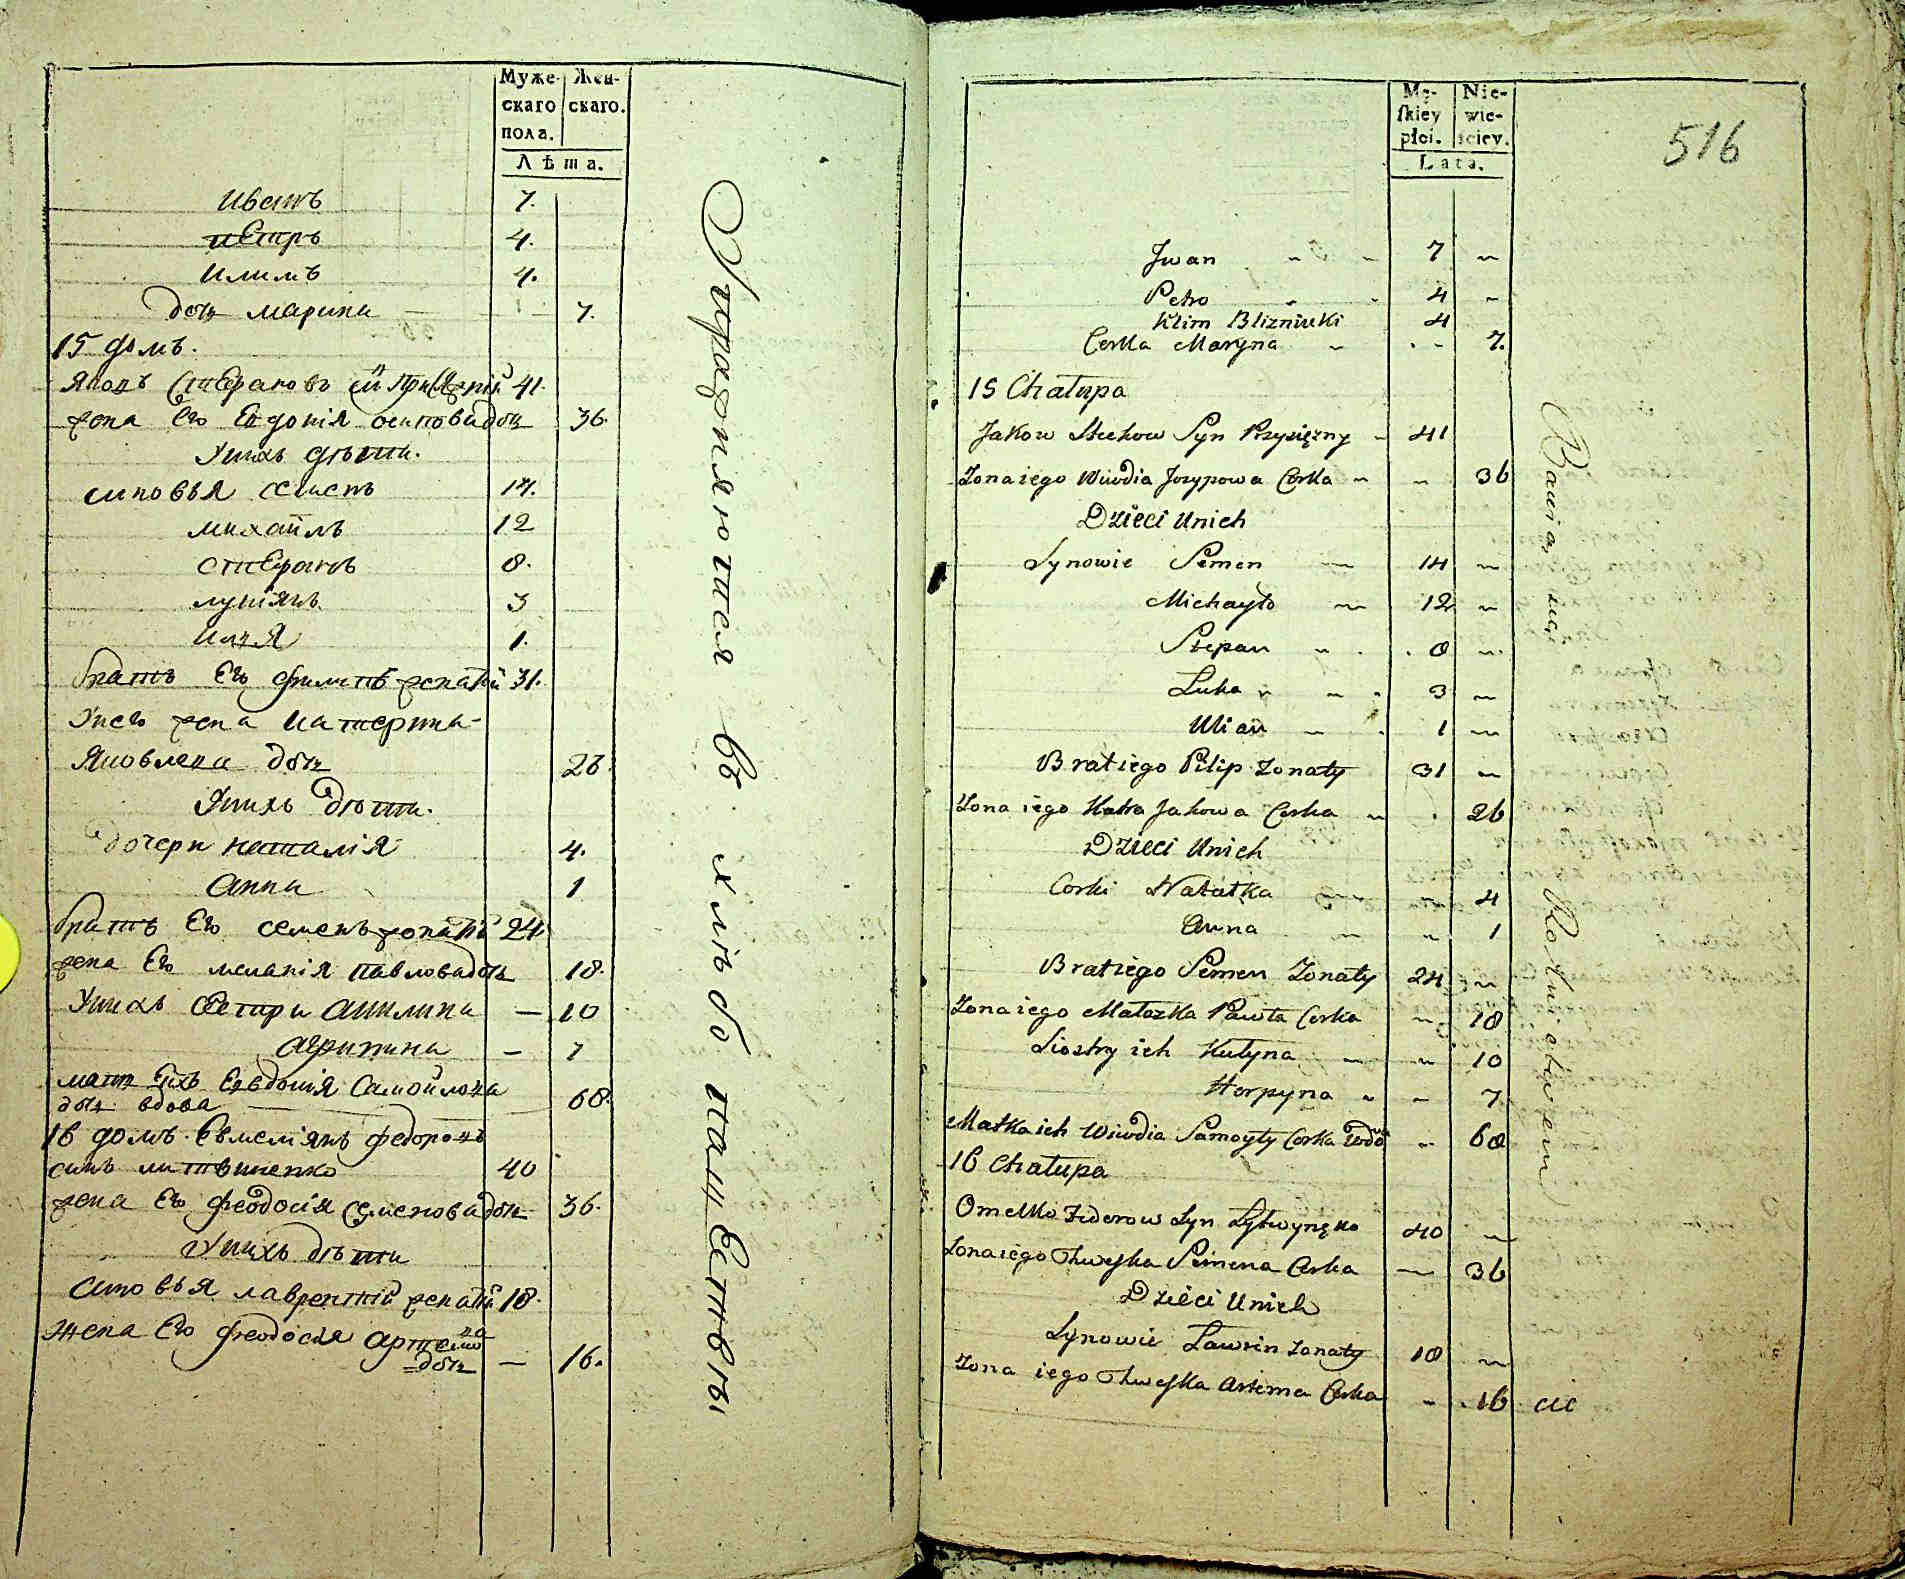 Муже-
скаго
пола.
Жен-
скаго.
Лѣта.
Иванъ 7.
Петръ 4.
Климъ 4.
дочь марина 7.
15 домъ.
Яковъ Стефановъ сн̃ 41.
жена Его Евдокія осиповадочь 36.
Унихъ дѣти.
синовья семенъ 14.
михайлъ 12
стефанъ 8.
лукіянъ 3
Илья 1.
братъ Его филипъ женатій 31.
Унего жена катерина
Яковлева дочь 26.
Унихъ дѣти.
дочери наталія 4.
анна 1
братъ Его семенъ женатій 24
жена Его меланія павловадочь 18.
Унихъ сестри акилина — 10
агрипина — 7
мать Ихъ Евдокія Самойлова
дочь вдова 68.
16 домъ. Емеліянъ федоровъ
синъ литвиненко 40
жена Его феодосія семеновадочь 36.
Унихъ дѣти
синовья лаврентій женатій 18.
жена Его феодосія артемова
дочь — 16.
Упражняются въ хлѣбопашествы
Mę-
skiey
płci.
Nie-
wie-
sciey.
Lata.
516
Jwan 7
Petro 4
Klim Blizniuki 4
Corka Maryna 7.
15 Chałupa
Jakow Stechow Syn Przysięzny 41
Zona iego Wiwdia Jozypowa Corka 36
Dzieci Unich
Synowie Semen 14
Michayło 12
Stepan 8
Luka 3
Ulian 1
Brat iego Pilip Zonaty 31
Zona iego Katra Jakowa Corka 26
Dzieci Unich
Corki Natałka 4
Anna 1
Brat iego Semen Zonaty 24
Zona iego Małazka Pawła Corka 18
Siostry ich Kulyna 10
Horpyna 7
Matka ich Wiwdia Samoyły Corka Wdo 68
16 Chałupa
Omelko Fedorow Syn Lytwynęko 40
Zona iego Chweska Semena Corka 36
Dzieci Unich
Synowie Ławrin Zonaty 18
Zona iego Chweska Artema Corka 16
Bawią się Rolnictwem